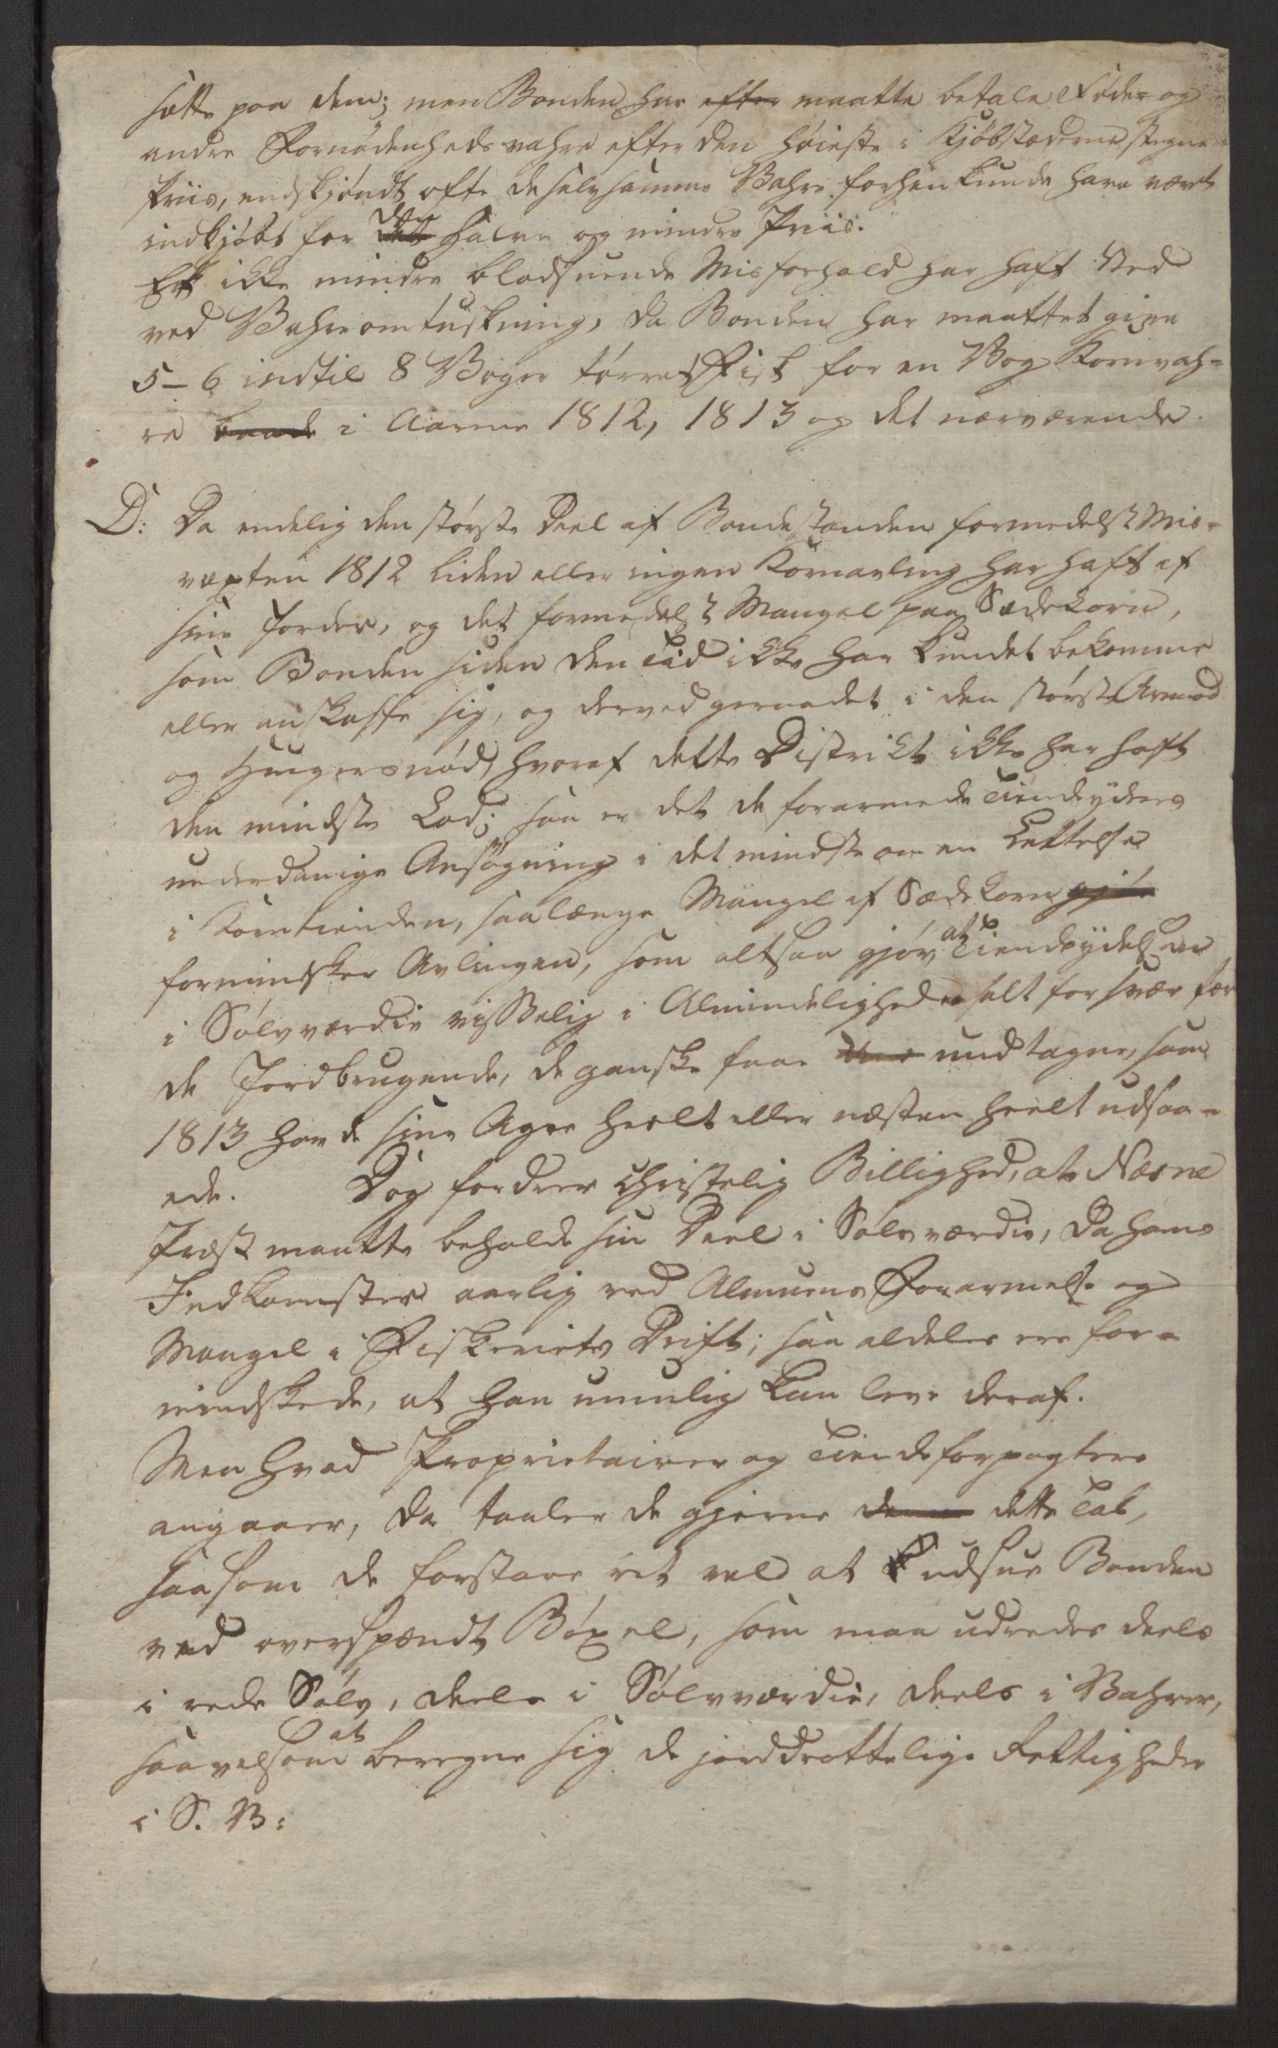 satte paa dem; men Bonden har efter maatte betale Føde- og
andre Fornødenheds vahre efter den høieste i Kjøbstæderne stegne
Priis, endskjøndt ofte de selv samme Vahre forhen kunde have været
indkjøbt for det den halve og mindre Priis.
Et ikke mindre blodsuende Misforhold har haft Sted
ved Vahreomtuskning, da Bonden har maattet give
5-6 indtil 8 Voger tørret Fisk for en Vog Kornvah-
re baade i Aarene 1812, 1813 og det nærværende.
D: Da endelig den største Deel af Bondestanden formedelst Mis-
væxten 1812 liden eller ingen Kornavling har haft af
sine Jorder, og det formedelst Mangel paa Sædekorn,
som Bonden siden den Tid ikke har kundet bekomme
eller anskaffe sig, og derved geraadet i den største Armod
og Hungersnød, hvoraf dette Distrikt ikke har haft
den mindste Lod; saa er det de forarmede Tiendeyderes
underdanige Ansøgning i det mindste om en Lettelse
i Korntienden, saalænge Mangel af Sædekorn gjør
formindsker Avlingen, som altsaa gjør at Tiendeydelsen
i Sølvværdie visselig i Almindelighed er alt for svær for
de Jordbrugende, de ganske faae undtagne, som
1813 havde sine Agre heelt eller næsten heelt udsaa-
ede. Dog fordrer christelig Billighed, at Næsne
Præst maatte beholde sin Deel i Sølvværdie, da hans
Indkomster aarlig ved Almuens Forarmelse og
Mangel i Fiskeriets Drift, saa aldeles ere for-
mindskede, at han umulig kan leve deraf.
Men hvad Proprietairer og Tiendeforpagtere
angaaer, da taaler de gjerne denne dette Tab,
saasom de forstaae ret vel at udsue Bonden
ved overspændt Bøxel, som maa udredes deels
i rede Sølv, deels i Sølvværdie, deels i Vahrer,
saavelsom at beregne sig de jorddrottelige Rettigheder
i S. V: